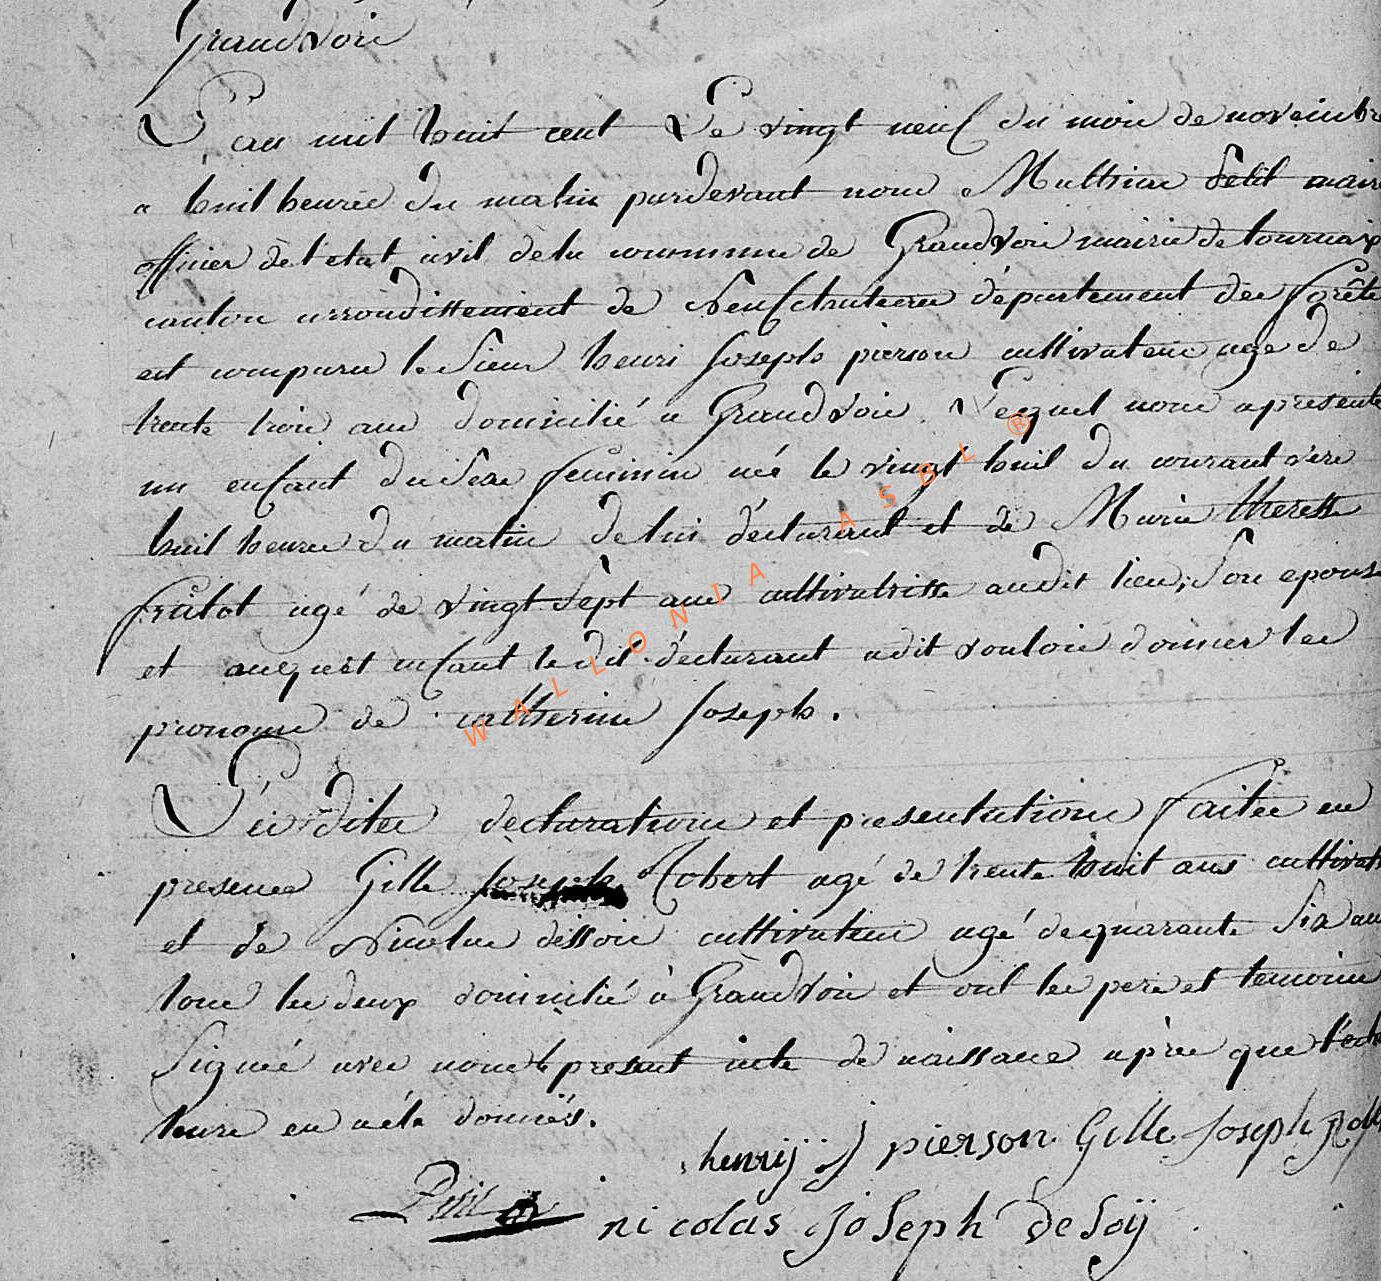 Grandvoir
L'an mil huit cent Le vingt neuf du mois de novembre
a huit heures du matin pardevant nous Mathieu Petit maire
officier de l'etat civil de la commune de Grandvoir mairie de tournaix
canton arrondissement de Neufchateau département des forêts
est comparu le Sieur henri Joseph pierson cultivateur agé de
trente trois ans domicilié a Grandvoir. Lequel nous a presenté
un enfant du Sexe feminin né le vingt huit du courant vers
huit heures du matin de lui déclarant et de Marie theresse
frâlot agé de vingt Sept ans cultivatrisse audit lieu, Son epouse
et auquest enfant le dit déclarant a dit vouloir donner les
pronoms de catherine Joseph.
Les dites declarations et presentations faites en
presence Gille Joseph Robert agé de trente huit ans cultivat
et de Nicolas dessoie cultivateur agé de quarante Six ans
tous les deux domicilié à Grandvoir et ont les pere et temoins
Signé avec nous le present acte de naissance après que
lecture en a été donnés.
henrij J pierson Gille Joseph Rob
Petit nicolas JoSeph DeSoÿ
WALLONIA ASBL ®